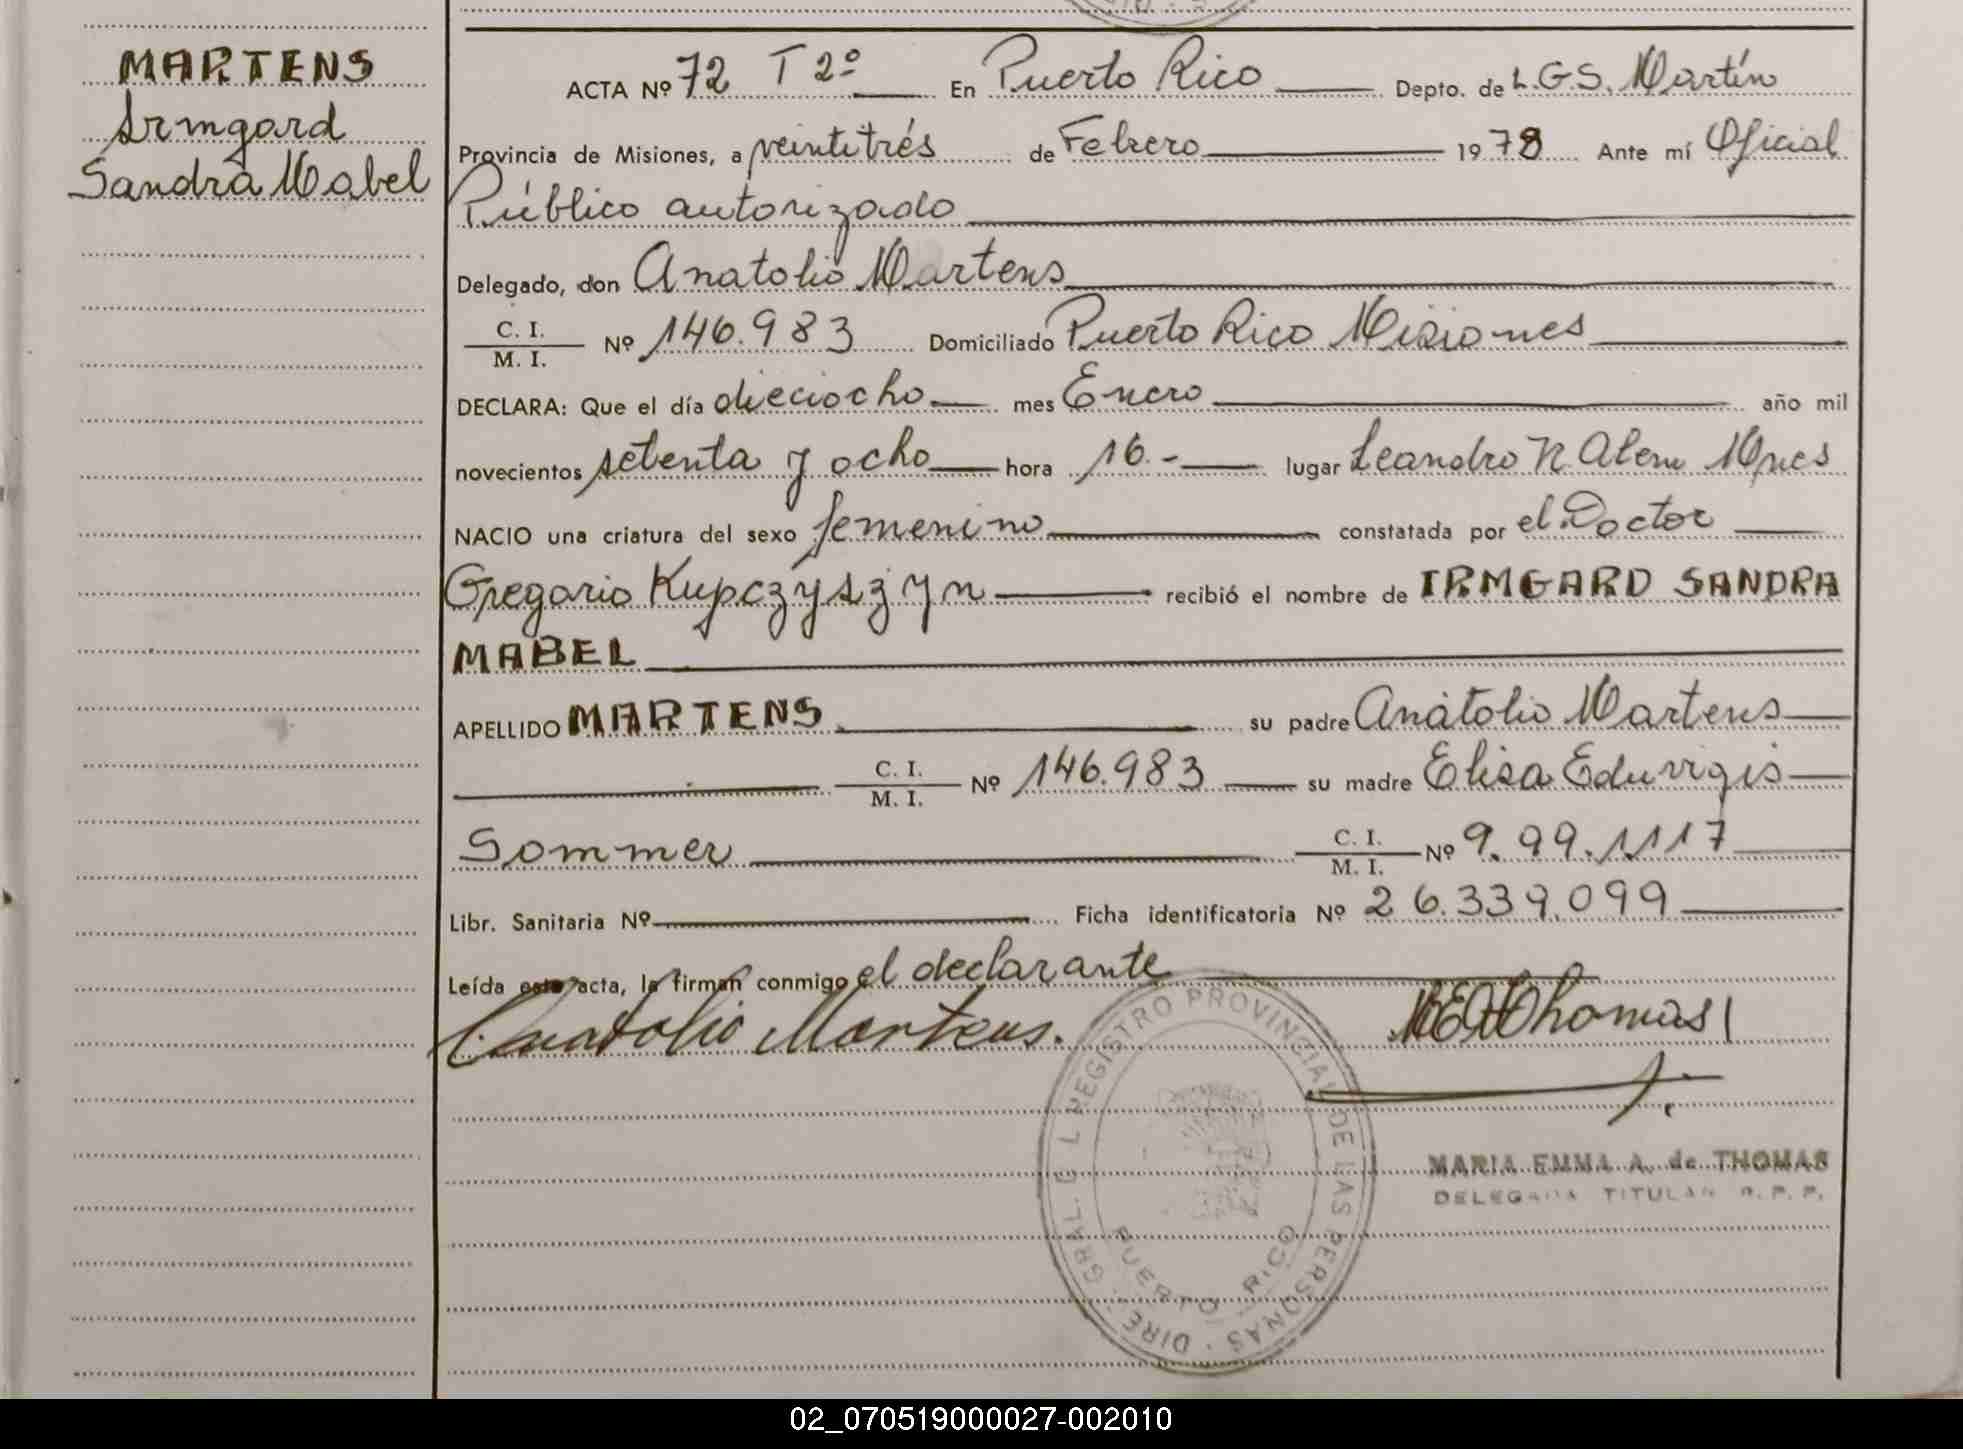 MARTENS
Irmgard
Sandra Mabel
ACTA Nº 72 T 2º En Puerto Rico Depto. de L.G.S. Martín
Provincia de Misiones, a veintitrés de Febrero 1978 Ante mí Oficial
Público autorizado
Delegado, don Anatolio Martens
C. I. / M. I. Nº 146.983 Domiciliado Puerto Rico Misiones
DECLARA: Que el día dieciocho mes Enero año mil
novecientos setenta y ocho hora 16.- lugar Leandro N. Alem Mnes
NACIO una criatura del sexo femenino constatada por el Doctor
Gregorio Kupczyszyn recibió el nombre de IRMGARD SANDRA
MABEL
APELLIDO MARTENS su padre Anatolio Martens
C. I. / M. I. Nº 146.983 su madre Elisa Eduvigis
Sommer C. I. / M. I. Nº 9.99.1117
Libr. Sanitaria Nº Ficha identificatoria Nº 26.339.099
Leída esta acta, la firman conmigo el declarante
Anatolio Martens.
Thomas
DIRE. GRAL. DEL REGISTRO PROVINCIAL DE LAS PERSONAS
PUERTO RICO
MARIA EMMA A. de THOMAS
DELEGADA TITULAR R. P. P.
02_070519000027-002010